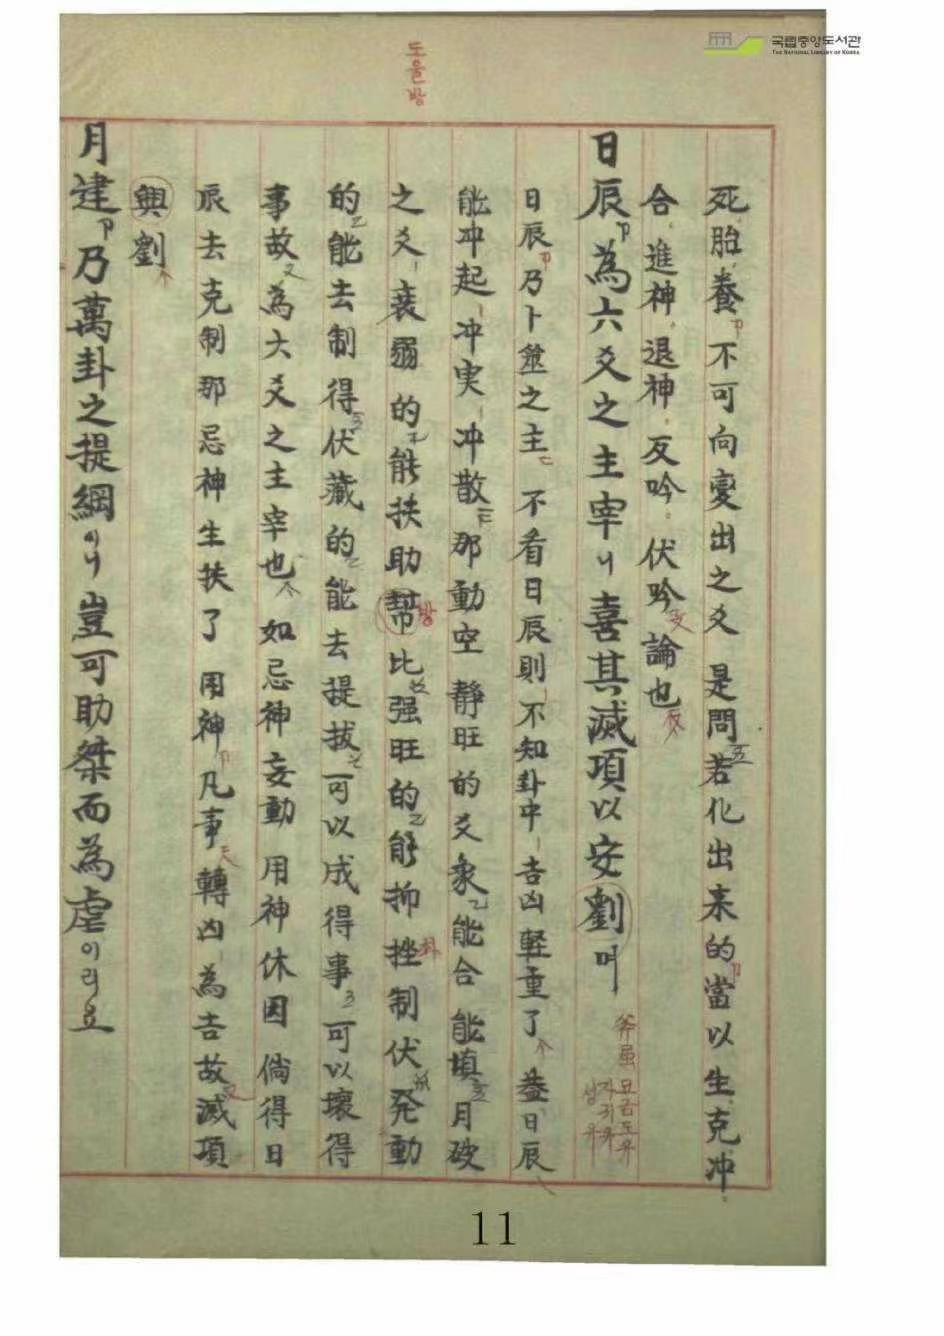 국립중앙도서관
THE NATIONAL LIBRARY OF KOREA
도울방
死胎養ᄀ不可向變出之爻 是問五若化出来的卩當以生克冲
合進神退神反吟伏吟論也
日辰卩為六爻之主宰니喜其滅項以安劉며
日辰卩乃卜筮之主 不看日辰則不知卦中吉凶軽重了 盖日辰
能冲起冲実冲散 那動空 靜旺的爻象 能合能填 月破
之爻 衰弱的 能扶助幇방比 强旺的 能抑挫좌制伏 発動
的 能去制得 伏藏的 能去提拔 可以成得事 可以壞得
事故 為六爻之主宰也 如忌神妄動 用神休囚 倘得日
辰去克制那忌神生扶了用神 凡事轉凶為吉故 滅項
興劉
月建卩乃萬卦之提綱이니豈可助桀而為虐이리요
11